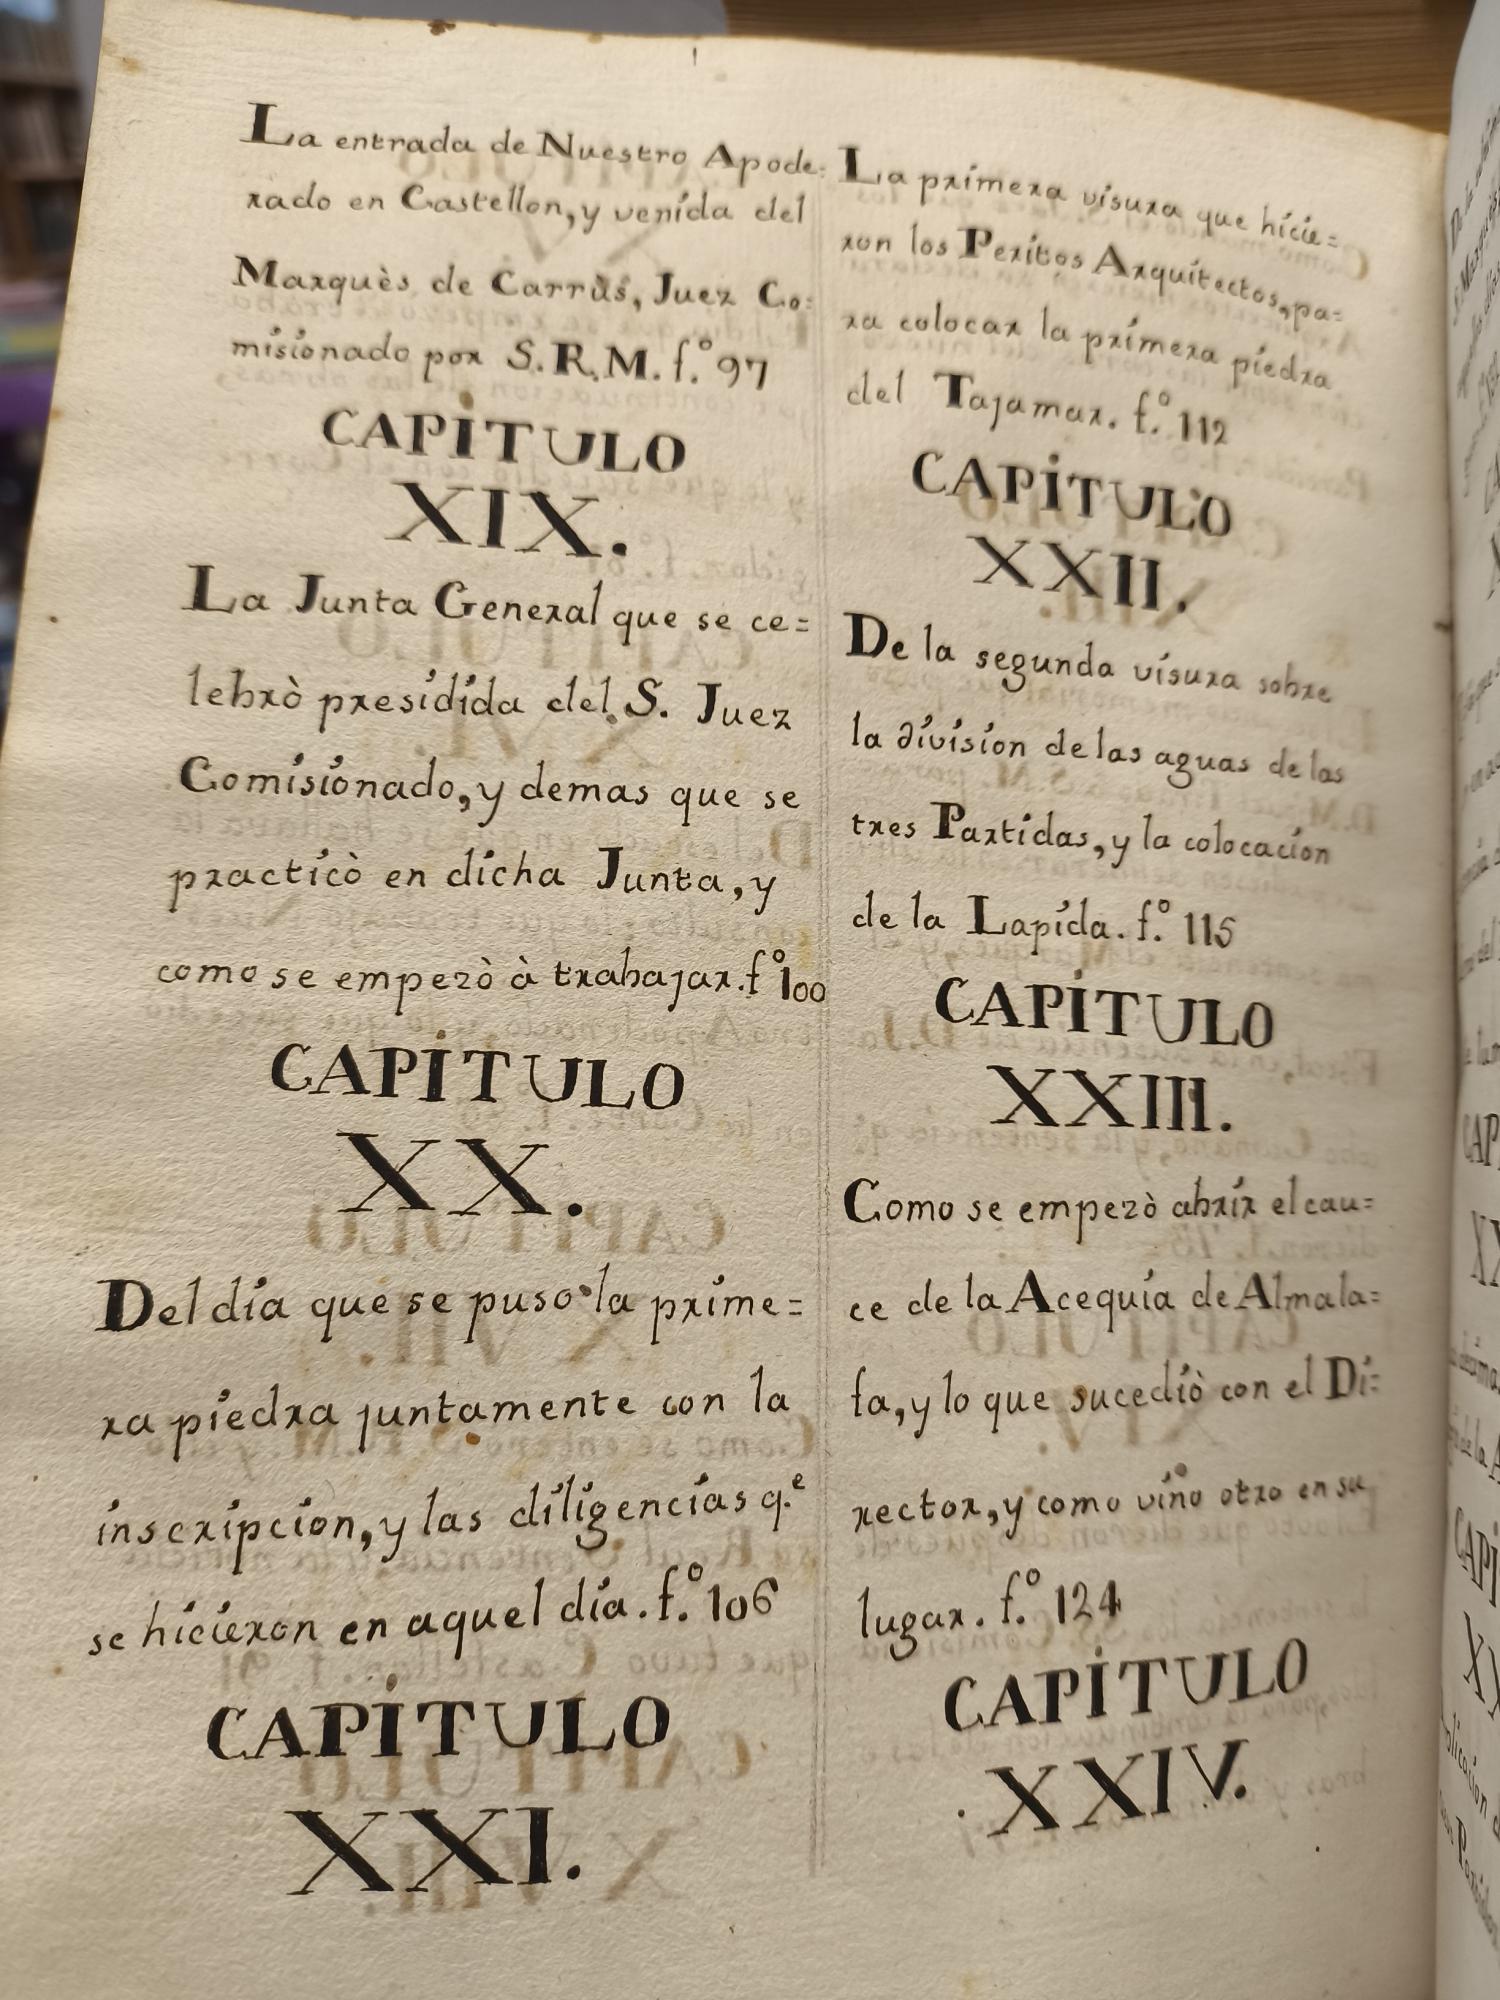 La entrada de Nuestro Apode:
rado en Castellon, y venida del
Marquès de Carrús, Juez Co:
misionado por S.R.M. f.º 97
CAPITULO
XIX.
La Junta General que se ce=
lebrò presidida del S. Juez
Comisionado, y demas que se
practicò en dicha Junta, y
como se empezò à trabajar. fº 100
CAPITULO
XX.
Del dia que se puso la prime=
ra piedra juntamente con la
inscripcion, y las diligencias q.e
se hicieron en aquel dia. f.º 106
CAPITULO
XXI.
La primera visura que hicie=
ron los Peritos Arquitectos, pa=
ra colocar la primera piedra
del Tajamar. f.º 112
CAPITULO
XXII.
De la segunda visura sobre
la division de las aguas de las
tres Partidas, y la colocacion
de la Lapida. f.º 115
CAPITULO
XXIII.
Como se empezò abrir el cau=
ce de la Acequia de Almala=
fa, y lo que sucediò con el Di=
rector, y como vino otro en su
lugar. f.º 124
CAPITULO
XXIV.